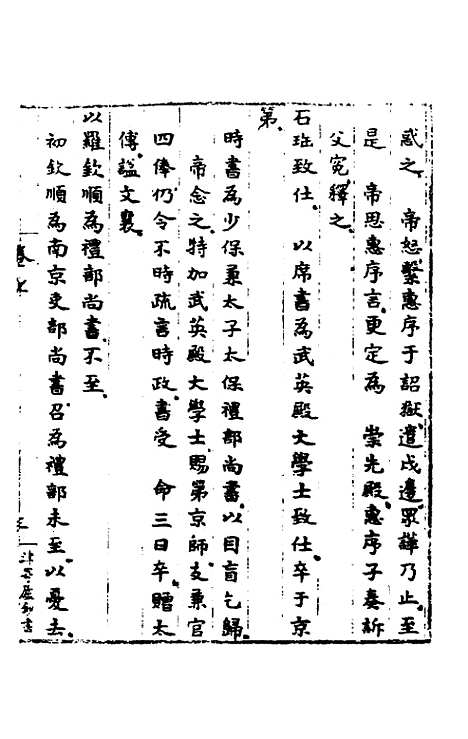 惑之　帝怒繫惠序于詔獄遣戍邊眾譁乃止至
是　帝思惠序言更定為　崇先殿惠序子奏訴
父冤釋之
石珤致仕　以席書為武英殿大學士致仕卒于京
第
時書為少保兼太子太保禮部尚書以目盲乞歸
帝念之特加武英殿大學士賜第京師支兼官
四俸仍令不時疏言時政書受　命三日卒贈太
傅謚文襄
以羅欽順為禮部尚書不至
初欽順為南京吏部尚書召為禮部未至以憂去